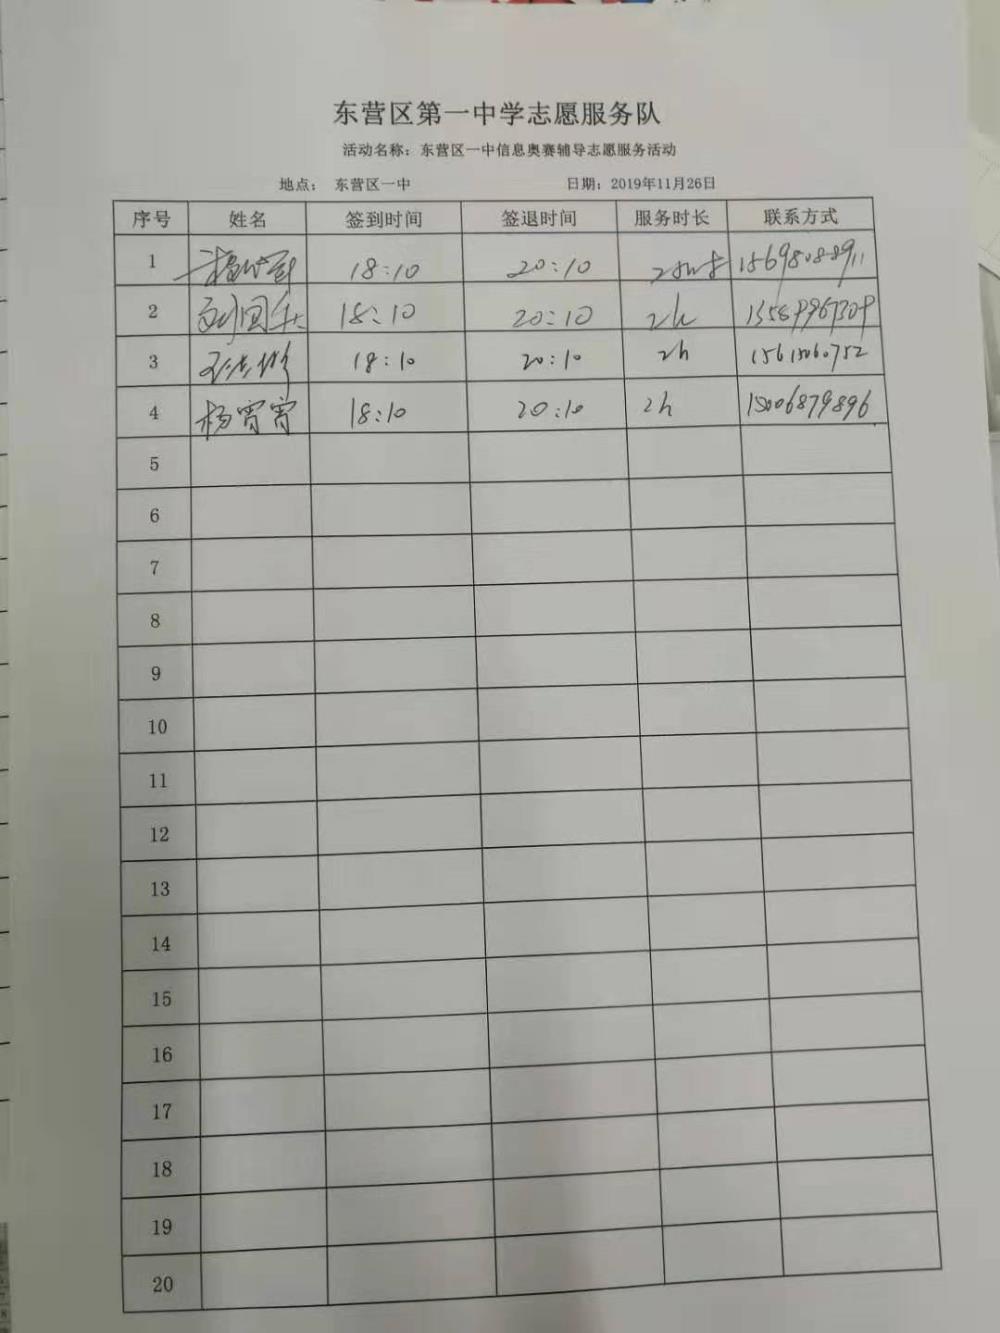 东营区第一中学志愿服务队
活动名称：东营区一中信息奥赛辅导志愿服务活动
地点： 东营区一中 日期：2019年11月26日
序号 姓名 签到时间 签退时间 服务时长 联系方式
1 18:10 20:10 15698088911
2 18:10 20:10 2h
3 18:10 20:10 2h 15615060752
4 杨霄霄 18:10 20:10 2h 15006879896
5
6
7
8
9
10
11
12
13
14
15
16
17
18
19
20